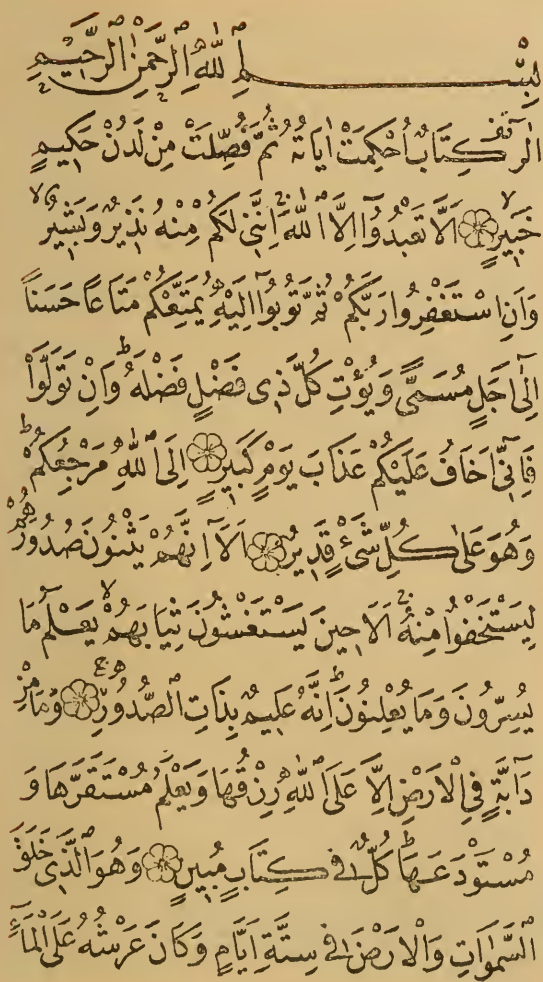 بِسْمِ اللّٰهِ الرَّحْمٰنِ الرَّحٖيمِ
الٓرٰ كِتَابٌ اُحْكِمَتْ اٰيَاتُهُ ثُمَّ فُصِّلَتْ مِنْ لَدُنْ حَكِيمٍ
خَبِيرٍ ۝ اَلَّا تَعْبُدُوٓا اِلَّا اللّٰهَ اِنَّنِي لَكُمْ مِنْهُ نَذِيرٌ وَبَشِيرٌ
وَاَنِ اسْتَغْفِرُوا رَبَّكُمْ ثُمَّ تُوبُوٓا اِلَيْهِ يُمَتِّعْكُمْ مَتَاعًا حَسَنًا
اِلٰٓى اَجَلٍ مُسَمًّى وَيُؤْتِ كُلَّ ذِي فَضْلٍ فَضْلَهُ ۜ وَاِنْ تَوَلَّوْا
فَاِنِّٓي اَخَافُ عَلَيْكُمْ عَذَابَ يَوْمٍ كَبِيرٍ ۝ اِلَى اللّٰهِ مَرْجِعُكُمْ ۚ
وَهُوَ عَلٰى كُلِّ شَيْءٍ قَدِيرٌ ۝ اَلَٓا اِنَّهُمْ يَثْنُونَ صُدُورَهُمْ
لِيَسْتَخْفُوا مِنْهُ اَلَا حِينَ يَسْتَغْشُونَ ثِيَابَهُمْ يَعْلَمُ مَا
يُسِرُّونَ وَمَا يُعْلِنُونَ اِنَّهُ عَلِيمٌ بِذَاتِ الصُّدُورِ ۝ وَمَا مِنْ
دَٓابَّةٍ فِي الْاَرْضِ اِلَّا عَلَى اللّٰهِ رِزْقُهَا وَيَعْلَمُ مُسْتَقَرَّهَا وَ
مُسْتَوْدَعَهَا كُلٌّ فِي كِتَابٍ مُبِينٍ ۝ وَهُوَ الَّذِي خَلَقَ
السَّمٰوَاتِ وَالْاَرْضَ فِي سِتَّةِ اَيَّامٍ وَكَانَ عَرْشُهُ عَلَى الْمَٓاءِ